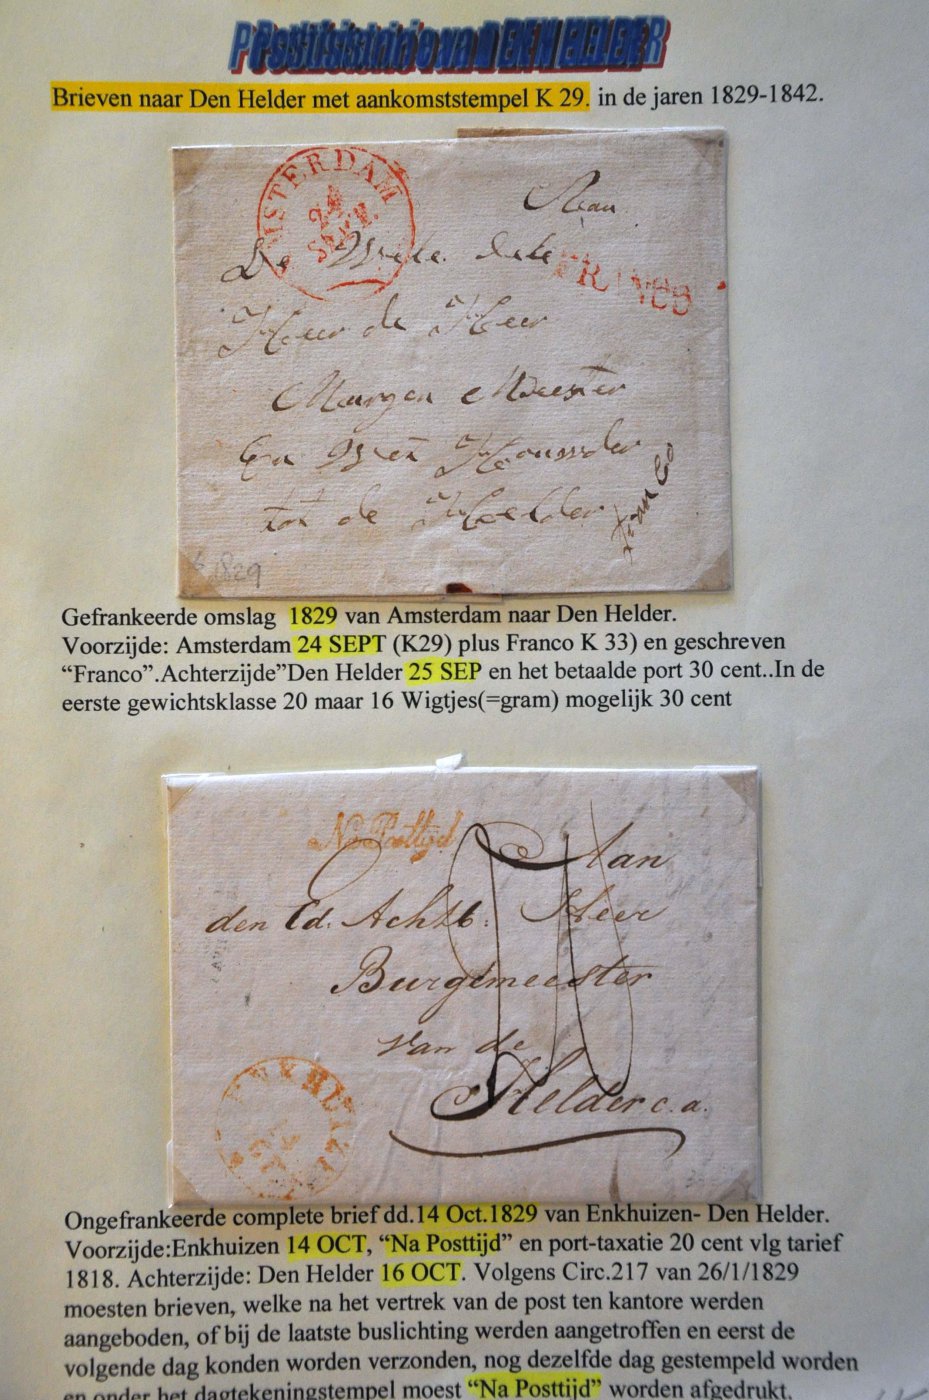 Posthistorie van DEN HELDER
Brieven naar Den Helder met aankomststempel K 29. in de jaren 1829-1842.
AMSTERDAM
24
SEPT.
Aan
De Wele dele
FRANCO
Heer de Heer
Murgen Meester
En Wet Houwder
tot de Helder
Franco
1829
Gefrankeerde omslag 1829 van Amsterdam naar Den Helder.
Voorzijde: Amsterdam 24 SEPT (K29) plus Franco K 33) en geschreven
“Franco”.Achterzijde”Den Helder 25 SEP en het betaalde port 30 cent..In de
eerste gewichtsklasse 20 maar 16 Wigtjes(=gram) mogelijk 30 cent
Na Posttijd
Aan
den Ed. Achtb: Heer
Burgemeester
van de
Helder c.a.
ENKHUIZEN
14
OCT
Ongefrankeerde complete brief dd.14 Oct.1829 van Enkhuizen- Den Helder.
Voorzijde:Enkhuizen 14 OCT, “Na Posttijd” en port-taxatie 20 cent vlg tarief
1818. Achterzijde: Den Helder 16 OCT. Volgens Circ.217 van 26/1/1829
moesten brieven, welke na het vertrek van de post ten kantore werden
aangeboden, of bij de laatste buslichting werden aangetroffen en eerst de
volgende dag konden worden verzonden, nog dezelfde dag gestempeld worden
en onder het dagtekeningstempel moest “Na Posttijd” worden afgedrukt.